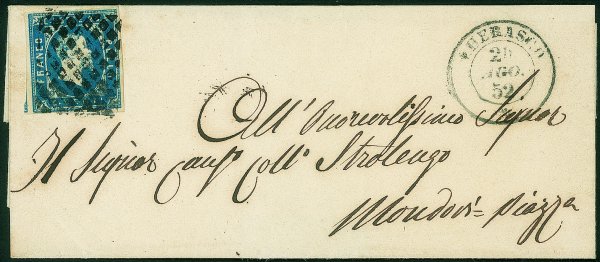 FRANCO
CHERASCO
AGO.
52
All' Onorevolissimo Signor
Il Signor Collo Strolengo
Mondovì = Piazza